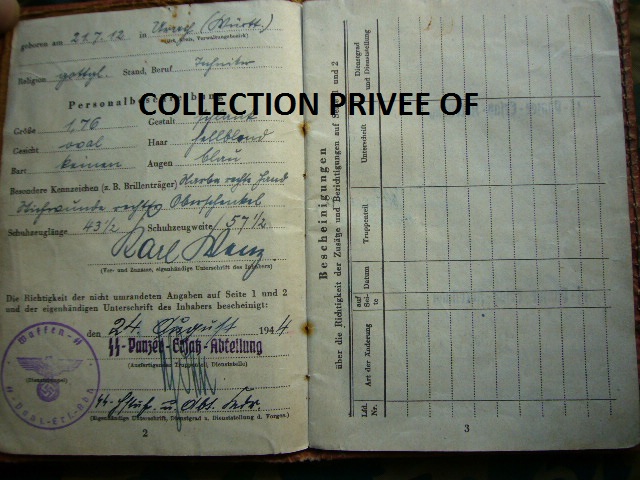 geboren am 21.7.12 in Urach (Württ.)
(Ort, Kreis, Verwaltungsbezirk)
Religion gottgl. Stand, Beruf Techniker
Personalbes
COLLECTION PRIVEE OF
Größe 1,76 Gestalt schlank
Gesicht oval Haar hellblond
Bart keinen Augen blau
Besondere Kennzeichen (z. B. Brillenträger) Narbe rechte Hand
Stichwunde rechts Oberschenkel
Schuhzeuglänge 43 1/2 Schuhzeugweite 57 1/2
Karl
(Vor- und Zuname, eigenhändige Unterschrift des Inhabers)
Die Richtigkeit der nicht umrandeten Angaben auf Seite 1 und 2
und der eigenhändigen Unterschrift des Inhabers bescheinigt:
den 24. August 1944
SS-Panzer-Ersatz-Abteilung
(Ausfertigender Truppenteil, Dienststelle)
Waffen-SS
(Dienststempel)
SS-Hstuf. u. Abt.
(Eigenhändige Unterschrift, Dienstgrad u. Dienststellung d. Vorges.)
2
Bescheinigungen
über die Richtigkeit der Zusätze und Berichtigungen auf Seite 1 und 2
Lfd. Nr.
Art der Änderung
auf Seite
Datum
Truppenteil
Unterschrift
Dienstgrad und Dienststellung
3